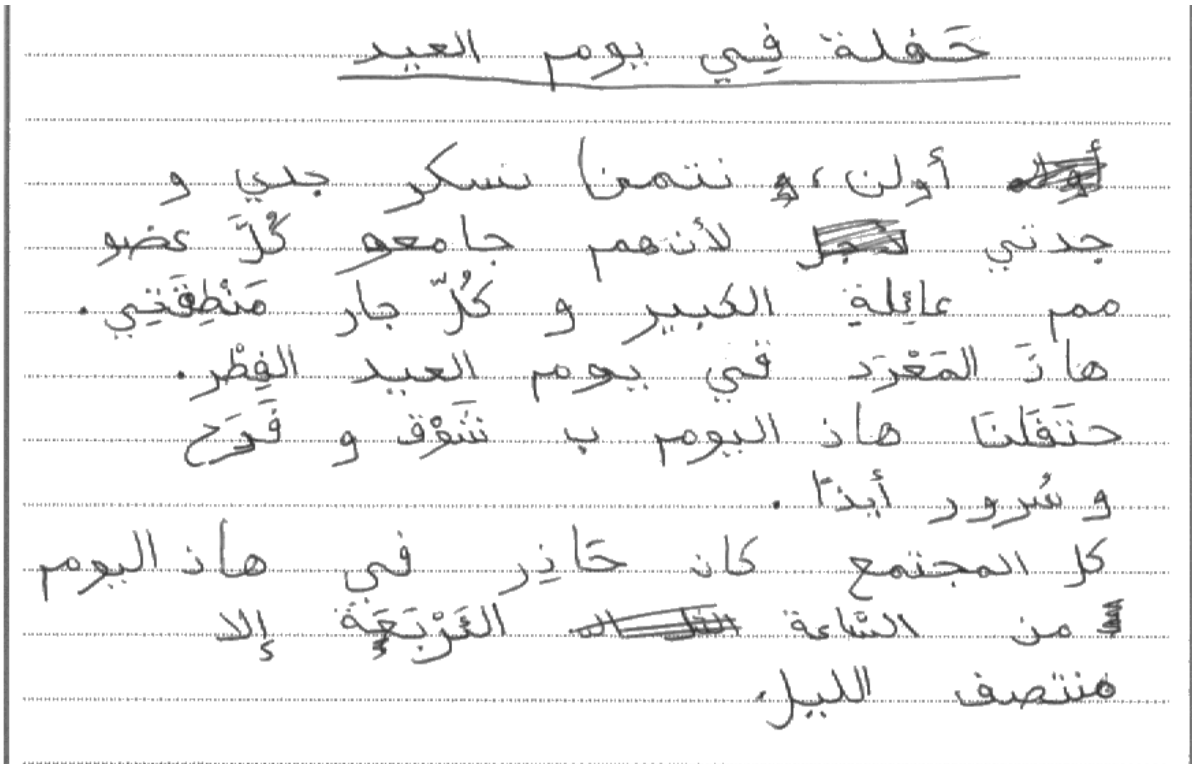 حَفلة فِي يوم العيد
أولن، و نتمنا نسكر جدي و
جدتي لأنهم جامعو كُلَّ عضو
مم عايلةِ الكبير و كُلّ جار مَنْطِقَتِي.
هاذَ المَعْرَد في يوم العيد الفِطْر.
حتَفَلنَا هاذ اليوم ب شَوْق و فَرَح
و سُرور أيذًا.
كل المجتمع كان حَاذِر في هاذ اليوم
من السّاعة التَرْبَعَة إلا
منتصف الليل.